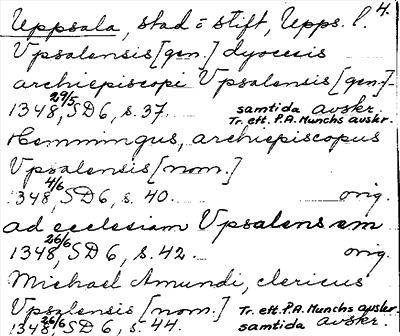 Uppsala, stad o stift, Upps. l. 4.
Vpsalensis [gen.] dyocesis
archiepiscopi Vpsalensis [gen.]
1348 29/5, SD 6, s. 37. samtida avskr.
Tr. eft. P.A. Munchs avskr.
Hemmingus, archiepiscopus
Vpsalensis [nom.]
1348 4/6, SD 6, s. 40. orig.
ad ecclesiam Vpsalensem
1348 26/6, SD 6, s. 42. orig.
Michael Amundi, clericus
Vpsalensis [nom.] Tr. eft. P.A. Munchs avskr.
1348 26/6, SD 6, s. 44. samtida avskr.